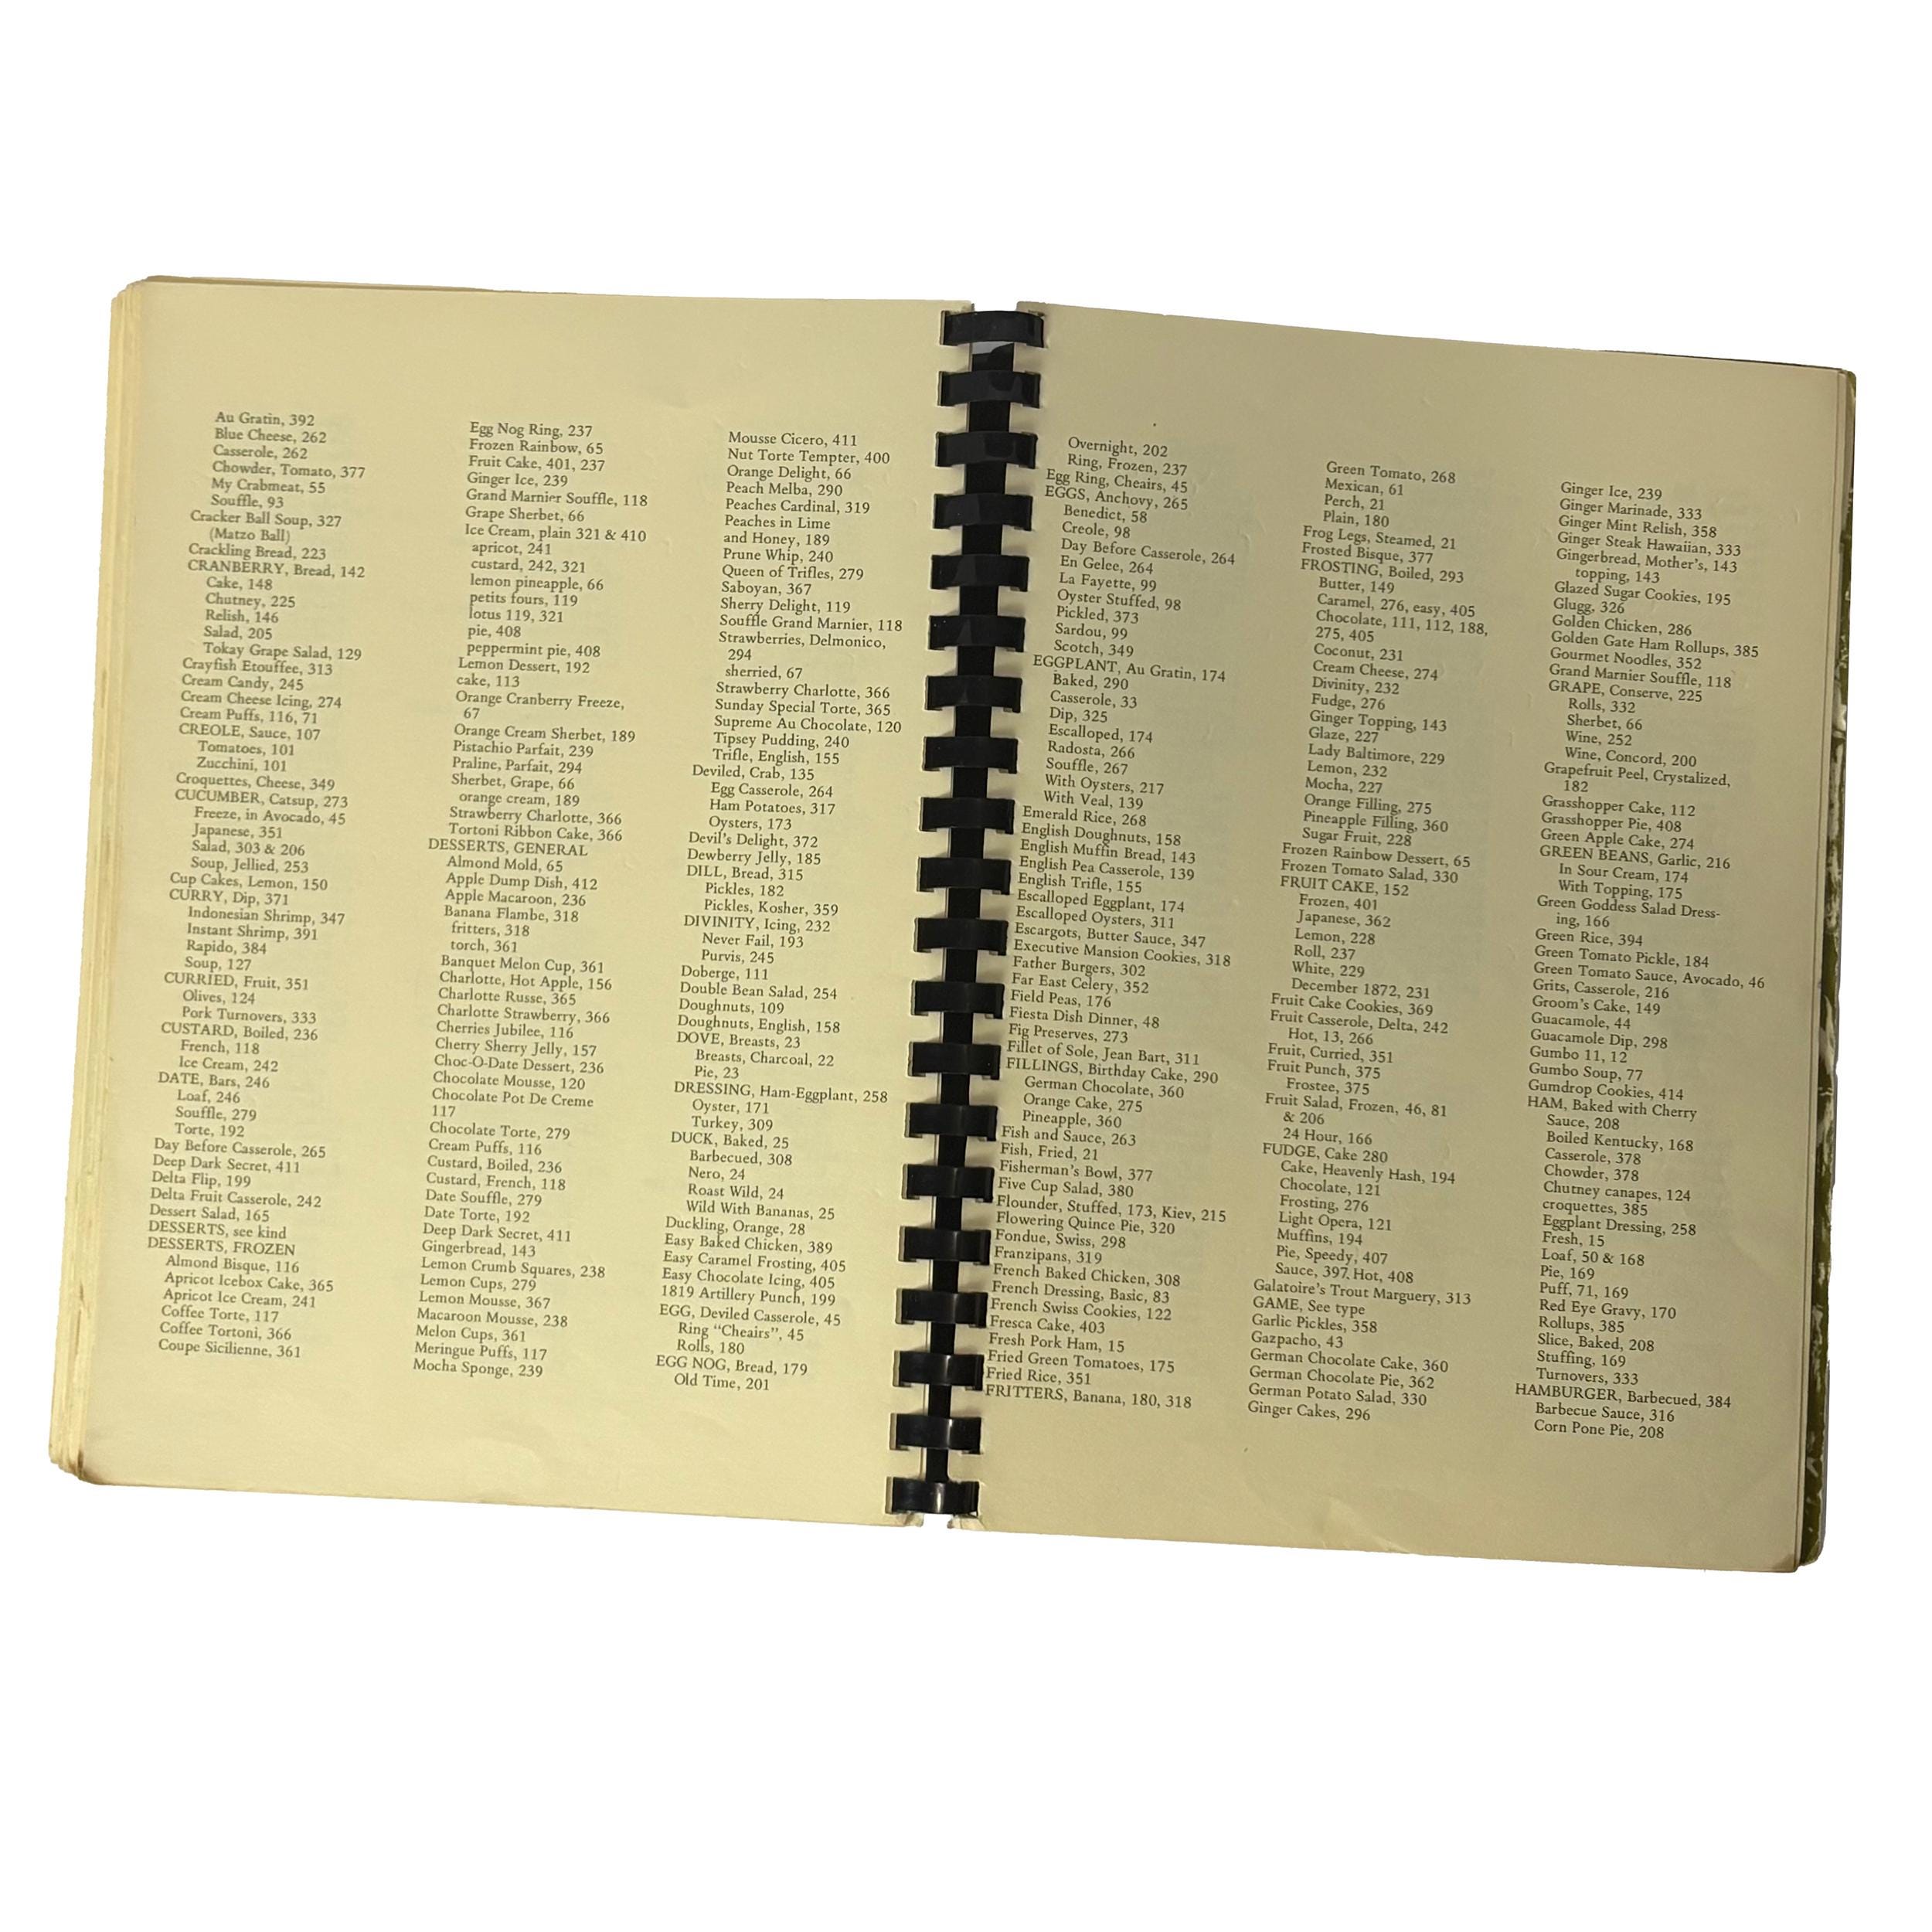 Au Gratin, 392
Blue Cheese, 262
Casserole, 262
Chowder, Tomato, 377
My Crabmeat, 55
Souffle, 93
Cracker Ball Soup, 327
(Matzo Ball)
Crackling Bread, 223
CRANBERRY, Bread, 142
Cake, 148
Chutney, 225
Relish, 146
Salad, 205
Tokay Grape Salad, 129
Crayfish Etouffee, 313
Cream Candy, 245
Cream Cheese Icing, 274
Cream Puffs, 116, 71
CREOLE, Sauce, 107
Tomatoes, 101
Zucchini, 101
Croquettes, Cheese, 349
CUCUMBER, Catsup, 273
Freeze, in Avocado, 45
Japanese, 351
Salad, 303 & 206
Soup, Jellied, 253
Cup Cakes, Lemon, 150
CURRY, Dip, 371
Indonesian Shrimp, 347
Instant Shrimp, 391
Rapido, 384
Soup, 127
CURRIED, Fruit, 351
Olives, 124
Pork Turnovers, 333
CUSTARD, Boiled, 236
French, 118
Ice Cream, 242
DATE, Bars, 246
Loaf, 246
Souffle, 279
Torte, 192
Day Before Casserole, 265
Deep Dark Secret, 411
Delta Flip, 199
Delta Fruit Casserole, 242
Dessert Salad, 165
DESSERTS, see kind
DESSERTS, FROZEN
Almond Bisque, 116
Apricot Icebox Cake, 365
Apricot Ice Cream, 241
Coffee Torte, 117
Coffee Tortoni, 366
Coupe Sicilienne, 361
Egg Nog Ring, 237
Frozen Rainbow, 65
Fruit Cake, 401, 237
Ginger Ice, 239
Grand Marnier Souffle, 118
Grape Sherbet, 66
Ice Cream, plain 321 & 410
apricot, 241
custard, 242, 321
lemon pineapple, 66
petits fours, 119
lotus 119, 321
pie, 408
peppermint pie, 408
Lemon Dessert, 192
cake, 113
Orange Cranberry Freeze,
67
Orange Cream Sherbet, 189
Pistachio Parfait, 239
Praline, Parfait, 294
Sherbet, Grape, 66
orange cream, 189
Strawberry Charlotte, 366
Tortoni Ribbon Cake, 366
DESSERTS, GENERAL
Almond Mold, 65
Apple Dump Dish, 412
Apple Macaroon, 236
Banana Flambe, 318
fritters, 318
torch, 361
Banquet Melon Cup, 361
Charlotte, Hot Apple, 156
Charlotte Russe, 365
Charlotte Strawberry, 366
Cherries Jubilee, 116
Cherry Sherry Jelly, 157
Choc-O-Date Dessert, 236
Chocolate Mousse, 120
Chocolate Pot De Creme
117
Chocolate Torte, 279
Cream Puffs, 116
Custard, Boiled, 236
Custard, French, 118
Date Souffle, 279
Date Torte, 192
Deep Dark Secret, 411
Gingerbread, 143
Lemon Crumb Squares, 238
Lemon Cups, 279
Lemon Mousse, 367
Macaroon Mousse, 238
Melon Cups, 361
Meringue Puffs, 117
Mocha Sponge, 239
Mousse Cicero, 411
Nut Torte Tempter, 400
Orange Delight, 66
Peach Melba, 290
Peaches Cardinal, 319
Peaches in Lime
and Honey, 189
Prune Whip, 240
Queen of Trifles, 279
Saboyan, 367
Sherry Delight, 119
Souffle Grand Marnier, 118
Strawberries, Delmonico,
294
sherried, 67
Strawberry Charlotte, 366
Sunday Special Torte, 365
Supreme Au Chocolate, 120
Tipsey Pudding, 240
Trifle, English, 155
Deviled, Crab, 135
Egg Casserole, 264
Ham Potatoes, 317
Oysters, 173
Devil's Delight, 372
Dewberry Jelly, 185
DILL, Bread, 315
Pickles, 182
Pickles, Kosher, 359
DIVINITY, Icing, 232
Never Fail, 193
Purvis, 245
Doberge, 111
Double Bean Salad, 254
Doughnuts, 109
Doughnuts, English, 158
DOVE, Breasts, 23
Breasts, Charcoal, 22
Pie, 23
DRESSING, Ham-Eggplant, 258
Oyster, 171
Turkey, 309
DUCK, Baked, 25
Barbecued, 308
Nero, 24
Roast Wild, 24
Wild With Bananas, 25
Duckling, Orange, 28
Easy Baked Chicken, 389
Easy Caramel Frosting, 405
Easy Chocolate Icing, 405
1819 Artillery Punch, 199
EGG, Deviled Casserole, 45
Ring "Cheairs", 45
Rolls, 180
EGG NOG, Bread, 179
Old Time, 201
Overnight, 202
Ring, Frozen, 237
Egg Ring, Cheairs, 45
EGGS, Anchovy, 265
Benedict, 58
Creole, 98
Day Before Casserole, 264
En Gelee, 264
La Fayette, 99
Oyster Stuffed, 98
Pickled, 373
Sardou, 99
Scotch, 349
EGGPLANT, Au Gratin, 174
Baked, 290
Casserole, 33
Dip, 325
Escalloped, 174
Radosta, 266
Souffle, 267
With Oysters, 217
With Veal, 139
Emerald Rice, 268
English Doughnuts, 158
English Muffin Bread, 143
English Pea Casserole, 139
English Trifle, 155
Escalloped Eggplant, 174
Escalloped Oysters, 311
Escargots, Butter Sauce, 347
Executive Mansion Cookies, 318
Father Burgers, 302
Far East Celery, 352
Field Peas, 176
Fiesta Dish Dinner, 48
Fig Preserves, 273
Fillet of Sole, Jean Bart, 311
FILLINGS, Birthday Cake, 290
German Chocolate, 360
Orange Cake, 275
Pineapple, 360
Fish and Sauce, 263
Fish, Fried, 21
Fisherman's Bowl, 377
Five Cup Salad, 380
Flounder, Stuffed, 173, Kiev, 215
Flowering Quince Pie, 320
Fondue, Swiss, 298
Franzipans, 319
French Baked Chicken, 308
French Dressing, Basic, 83
French Swiss Cookies, 122
Fresca Cake, 403
Fresh Pork Ham, 15
Fried Green Tomatoes, 175
Fried Rice, 351
FRITTERS, Banana, 180, 318
Green Tomato, 268
Mexican, 61
Perch, 21
Plain, 180
Frog Legs, Steamed, 21
Frosted Bisque, 377
FROSTING, Boiled, 293
Butter, 149
Caramel, 276, easy, 405
Chocolate, 111, 112, 188,
275, 405
Coconut, 231
Cream Cheese, 274
Divinity, 232
Fudge, 276
Ginger Topping, 143
Glaze, 227
Lady Baltimore, 229
Lemon, 232
Mocha, 227
Orange Filling, 275
Pineapple Filling, 360
Sugar Fruit, 228
Frozen Rainbow Dessert, 65
Frozen Tomato Salad, 330
FRUIT CAKE, 152
Frozen, 401
Japanese, 362
Lemon, 228
Roll, 237
White, 229
December 1872, 231
Fruit Cake Cookies, 369
Fruit Casserole, Delta, 242
Hot, 13, 266
Fruit, Curried, 351
Fruit Punch, 375
Frostee, 375
Fruit Salad, Frozen, 46, 81
& 206
24 Hour, 166
FUDGE, Cake 280
Cake, Heavenly Hash, 194
Chocolate, 121
Frosting, 276
Light Opera, 121
Muffins, 194
Pie, Speedy, 407
Sauce, 397, Hot, 408
Galatoire's Trout Marguery, 313
GAME, See type
Garlic Pickles, 358
Gazpacho, 43
German Chocolate Cake, 360
German Chocolate Pie, 362
German Potato Salad, 330
Ginger Cakes, 296
Ginger Ice, 239
Ginger Marinade, 333
Ginger Mint Relish, 358
Ginger Steak Hawaiian, 333
Gingerbread, Mother's, 143
topping, 143
Glazed Sugar Cookies, 195
Glugg, 326
Golden Chicken, 286
Golden Gate Ham Rollups, 385
Gourmet Noodles, 352
Grand Marnier Souffle, 118
GRAPE, Conserve, 225
Rolls, 332
Sherbet, 66
Wine, 252
Wine, Concord, 200
Grapefruit Peel, Crystalized,
182
Grasshopper Cake, 112
Grasshopper Pie, 408
Green Apple Cake, 274
GREEN BEANS, Garlic, 216
In Sour Cream, 174
With Topping, 175
Green Goddess Salad Dress-
ing, 166
Green Rice, 394
Green Tomato Pickle, 184
Green Tomato Sauce, Avocado, 46
Grits, Casserole, 216
Groom's Cake, 149
Guacamole, 44
Guacamole Dip, 298
Gumbo 11, 12
Gumbo Soup, 77
Gumdrop Cookies, 414
HAM, Baked with Cherry
Sauce, 208
Boiled Kentucky, 168
Casserole, 378
Chowder, 378
Chutney canapes, 124
croquettes, 385
Eggplant Dressing, 258
Fresh, 15
Loaf, 50 & 168
Pie, 169
Puff, 71, 169
Red Eye Gravy, 170
Rollups, 385
Slice, Baked, 208
Stuffing, 169
Turnovers, 333
HAMBURGER, Barbecued, 384
Barbecue Sauce, 316
Corn Pone Pie, 208